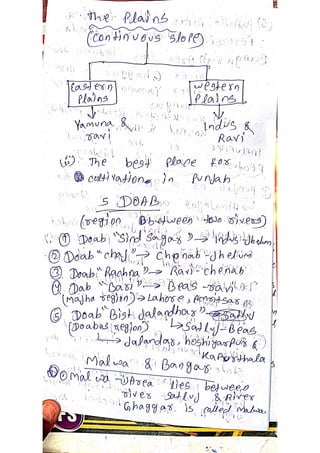 The Plains
(continuous slope)
Eastern Plains
western Plains
Yamuna & ravi
Indus & Ravi
(ii) The best place for
cultivation in Punjab
5 DOAB
(region between two rivers)
① Doab "Sind Sagar" → Indus-Jhelum
② Doab "Chaj" → Chenab-Jhelum
③ Doab "Rachna" → Ravi-chenab
④ Dab "Bari" → Beas-ravi
(Majha region) → Lahore, Amritsar
⑤ Doab "Bist Jalandhar" →
(Doaba region) → Satluj-Beas
→ Jalandar, hoshiyarpur &
Kapurthala
Malwa & Bangar
① Malwa → Area lies between
river satluj & River
Ghaggar is called Malwa.